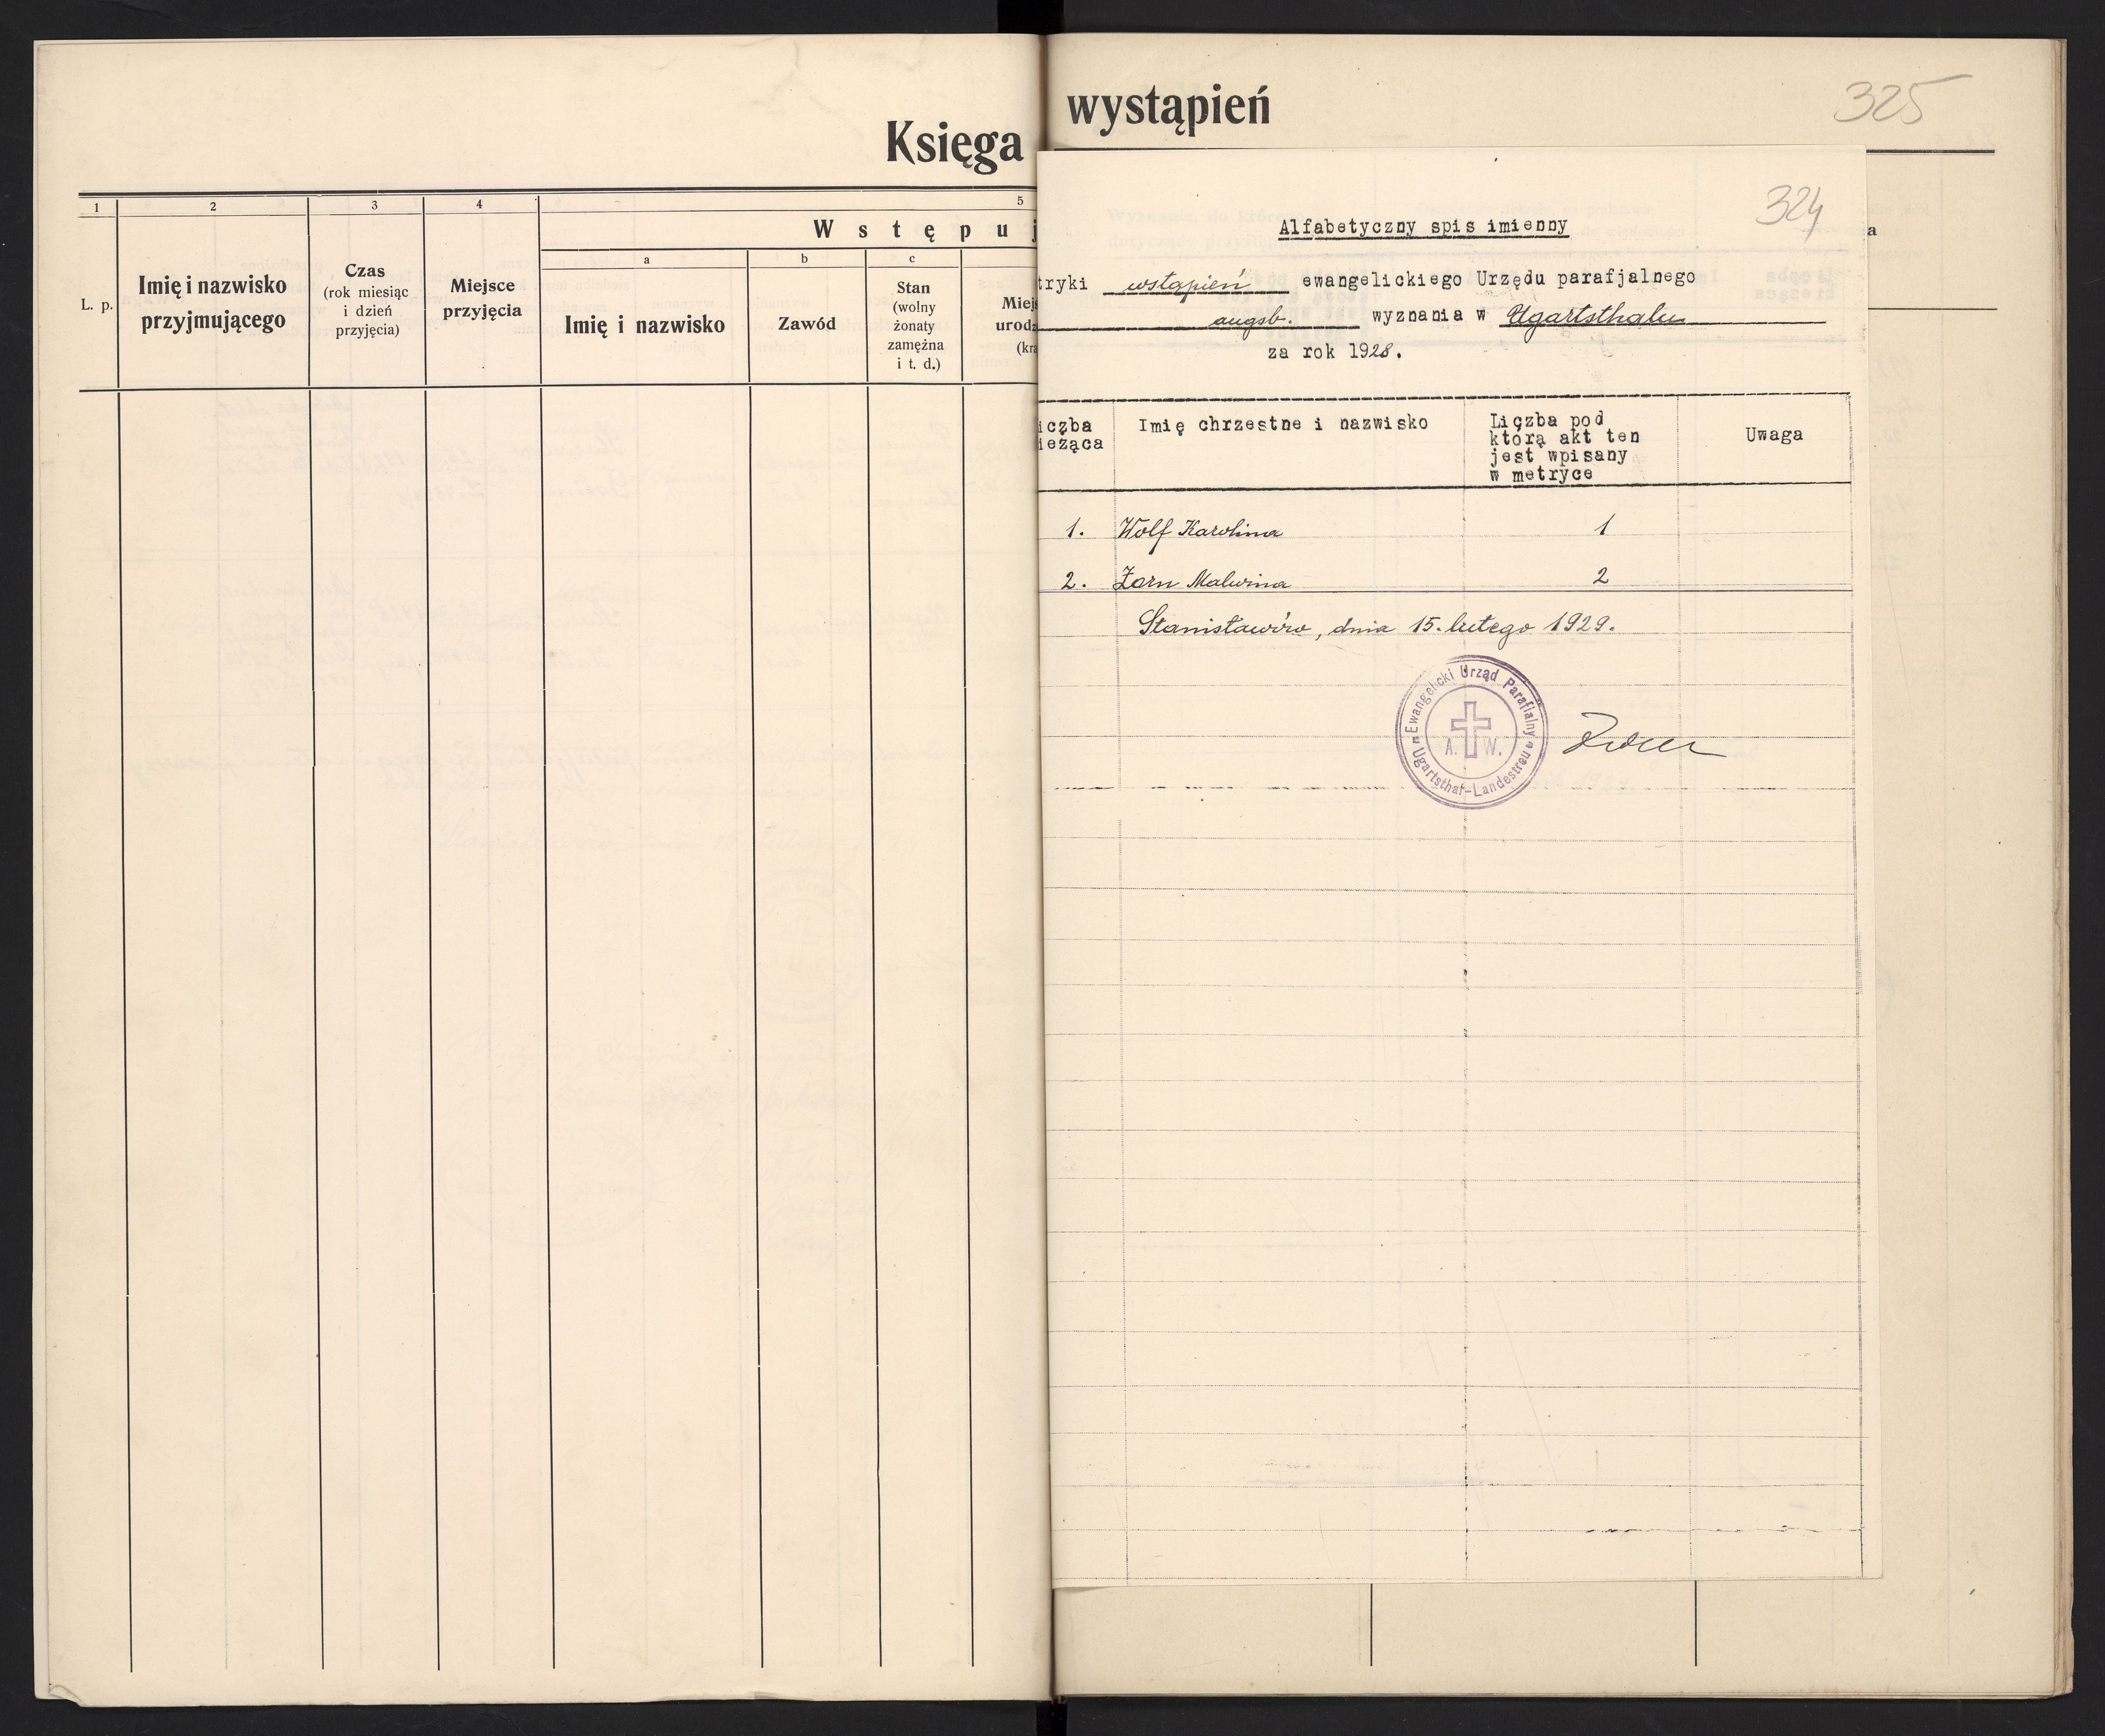 Księga
1 2 3 4 5
Wstępuj
L. p.
Imię i nazwisko
przyjmującego
Czas
(rok miesiąc
i dzień
przyjęcia)
Miejsce
przyjęcia
a b c
Imię i nazwisko
Zawód
Stan
(wolny
żonaty
zamężna
i t. d.)
Miejs
urodz
(kra
wystąpień
325
a
324
Alfabetyczny spis imienny
tryki wstąpień ewangelickiego Urzędu parafjalnego
augsb. wyznania w Ugartsthalu
za rok 1928.
iczba
ieżąca
Imię chrzestne i nazwisko
Liczba pod
którą akt ten
jest wpisany
w metryce
Uwaga
1. Wolf Karolina 1
2. Zorn Malwina 2
Stanisławów, dnia 15. lutego 1929.
Ewangelicki Urząd Parafialny
A. W.
Ugartsthal-Landestreu